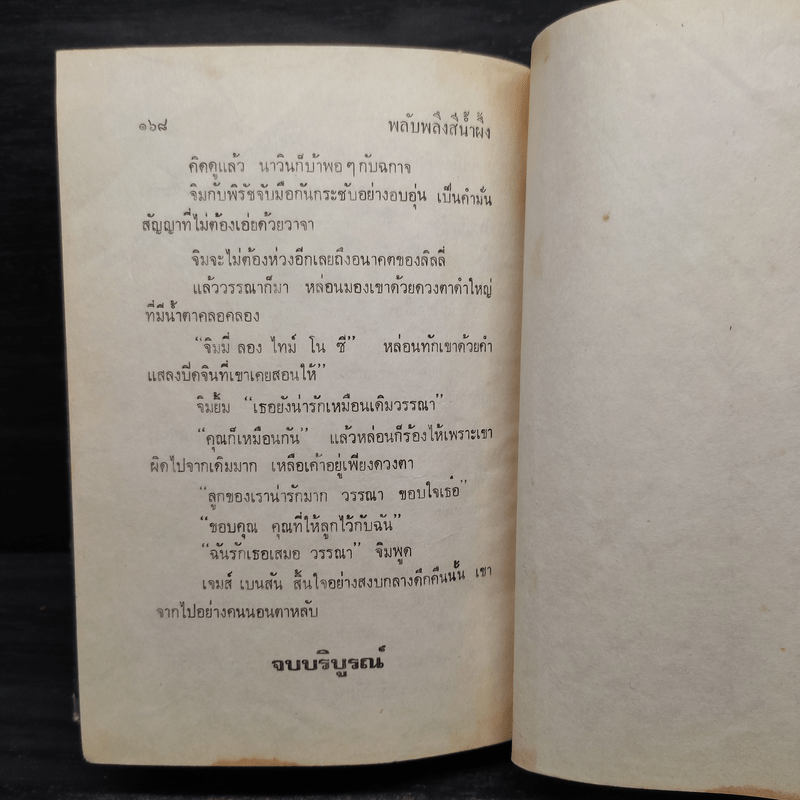 ๑๖๘ พลับพลึงสีน้ำผึ้ง
คิดดูแล้ว นาวินก็บ้าพอๆ กับฉกาจ
จิมกับพิรัชจับมือกันกระซับอย่างอบอุ่น เป็นคำมั่น
สัญญาที่ไม่ต้องเอ่ยด้วยวาจา
จิมจะไม่ต้องห่วงอีกเลยถึงอนาคตของลิลลี่
แล้ววรรณาก็มา หล่อนมองเขาด้วยดวงตาดำใหญ่
ที่มีน้ำตาคลอคลอง
“จิมมี่ ลอง ไทม์ โน ซี” หล่อนทักเขาด้วยคำ
แสลงบีดจินที่เขาเคยสอนให้”
จิมยิ้ม “เธอยังน่ารักเหมือนเดิมวรรณา”
“คุณก็เหมือนกัน” แล้วหล่อนก็ร้องไห้เพราะเขา
ผิดไปจากเดิมมาก เหลือเค้าอยู่เพียงดวงตา
“ลูกของเราน่ารักมาก วรรณา ขอบใจเธอ”
“ขอบคุณ คุณที่ให้ลูกไว้กับฉัน”
“ฉันรักเธอเสมอ วรรณา” จิมพูด
เจมส์ เบนสัน สิ้นใจอย่างสงบกลางดึกคืนนั้น เขา
จากไปอย่างคนนอนตาหลับ
จบบริบูรณ์